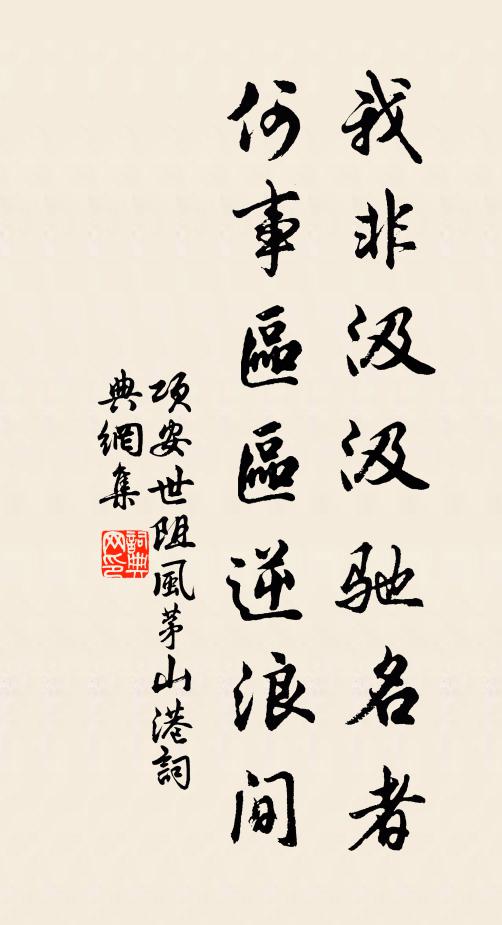 我非汲汲驰名者
何事區區逆浪间
项安世阻風茅山港詞
典網集
詞典
网印